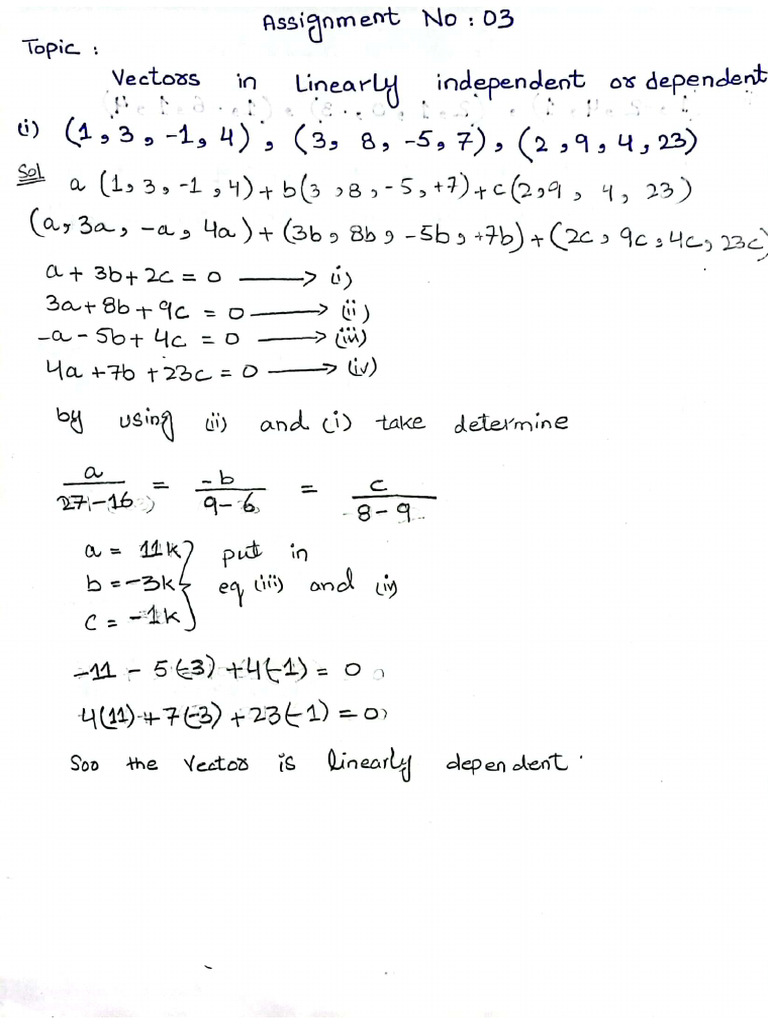 Assignment No : 03
Topic :
Vectors in Linearly independent or dependent
(i) (1, 3, -1, 4), (3, 8, -5, 7), (2, 9, 4, 23)
Sol a (1, 3, -1, 4) + b(3, 8, -5, +7) + c(2, 9, 4, 23)
(a, 3a, -a, 4a) + (3b, 8b, -5b, +7b) + (2c, 9c, 4c, 23c)
a + 3b + 2c = 0 ⟶ i)
3a + 8b + 9c = 0 ⟶ (ii)
-a - 5b + 4c = 0 ⟶ (iii)
4a + 7b + 23c = 0 ⟶ (iv)
by using (ii) and (i) take determine
a/(27-16) = -b/(9-6) = c/(8-9)
a = 11k } put in
b = -3k } eq (iii) and (iv)
c = -1k }
-11 - 5(-3) + 4(-1) = 0
4(11) + 7(-3) + 23(-1) = 0
Soo the Vector is linearly dependent.